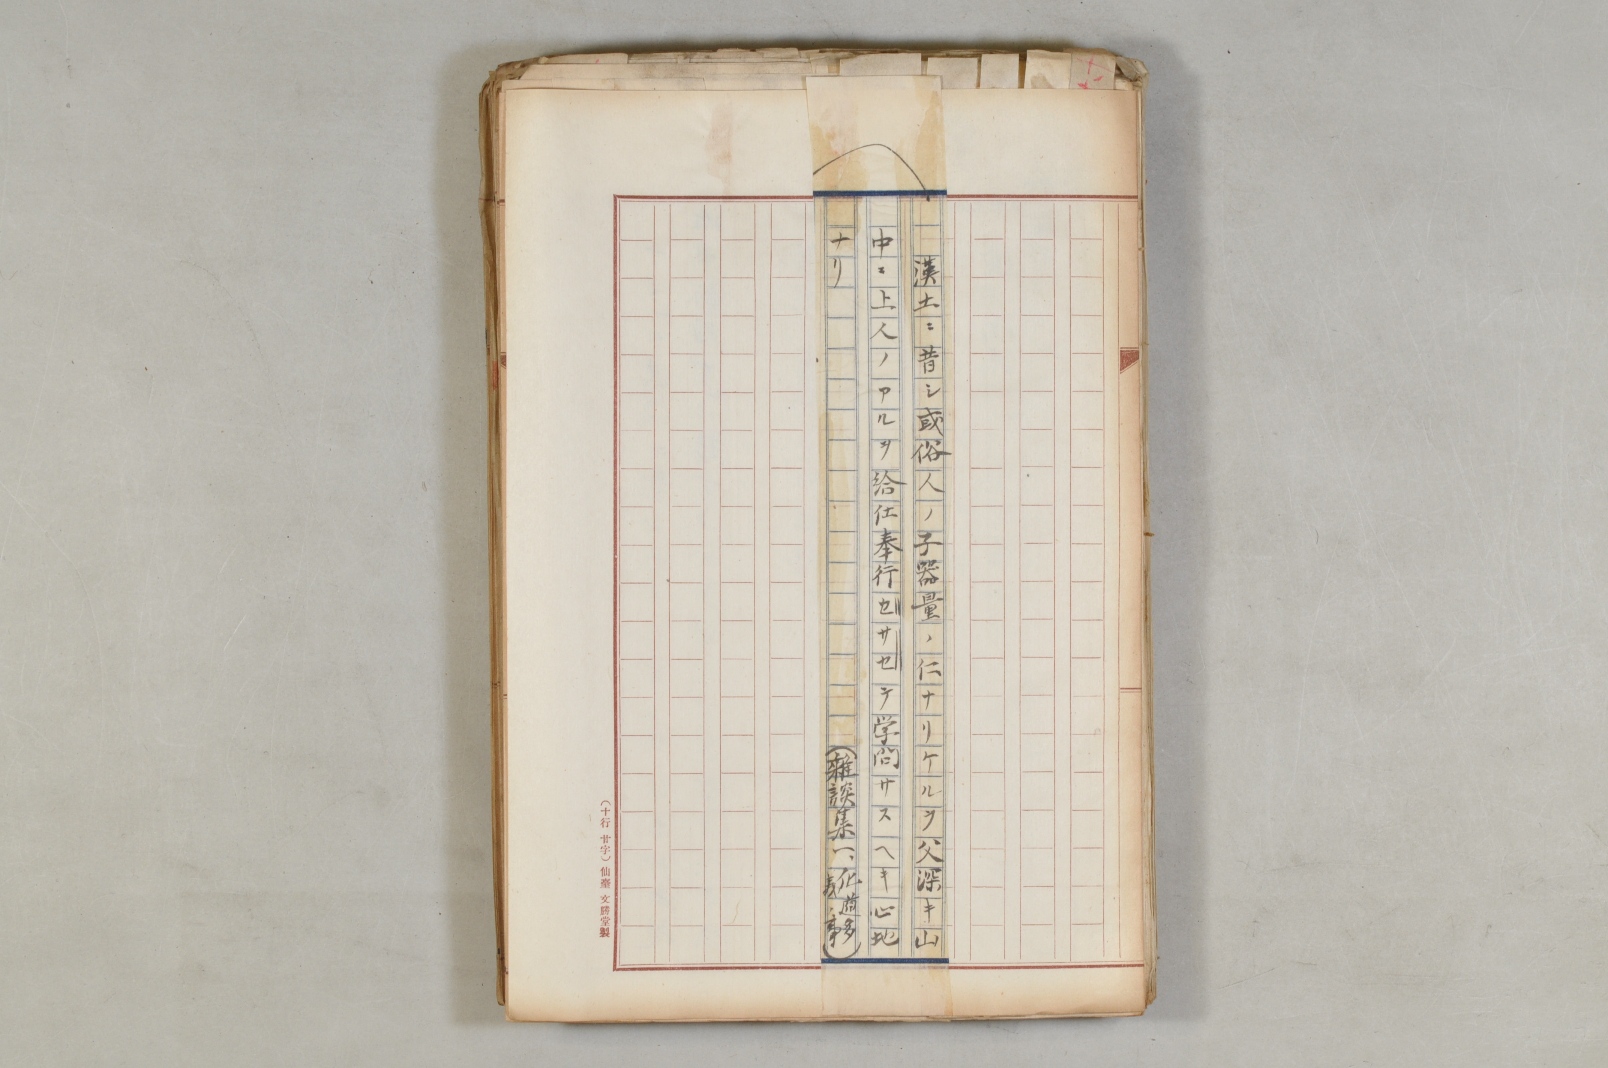 漢土ニ昔シ或俗人ノ子器量ノ仁ナリケルヲ父深キ山
中ニ上人ノアルヲ給仕奉行セサセテ学問サスヘキ心地
ナリ
(雑談集一、化道多義ノ事)
(十行 廿字) 仙臺 文勝堂製